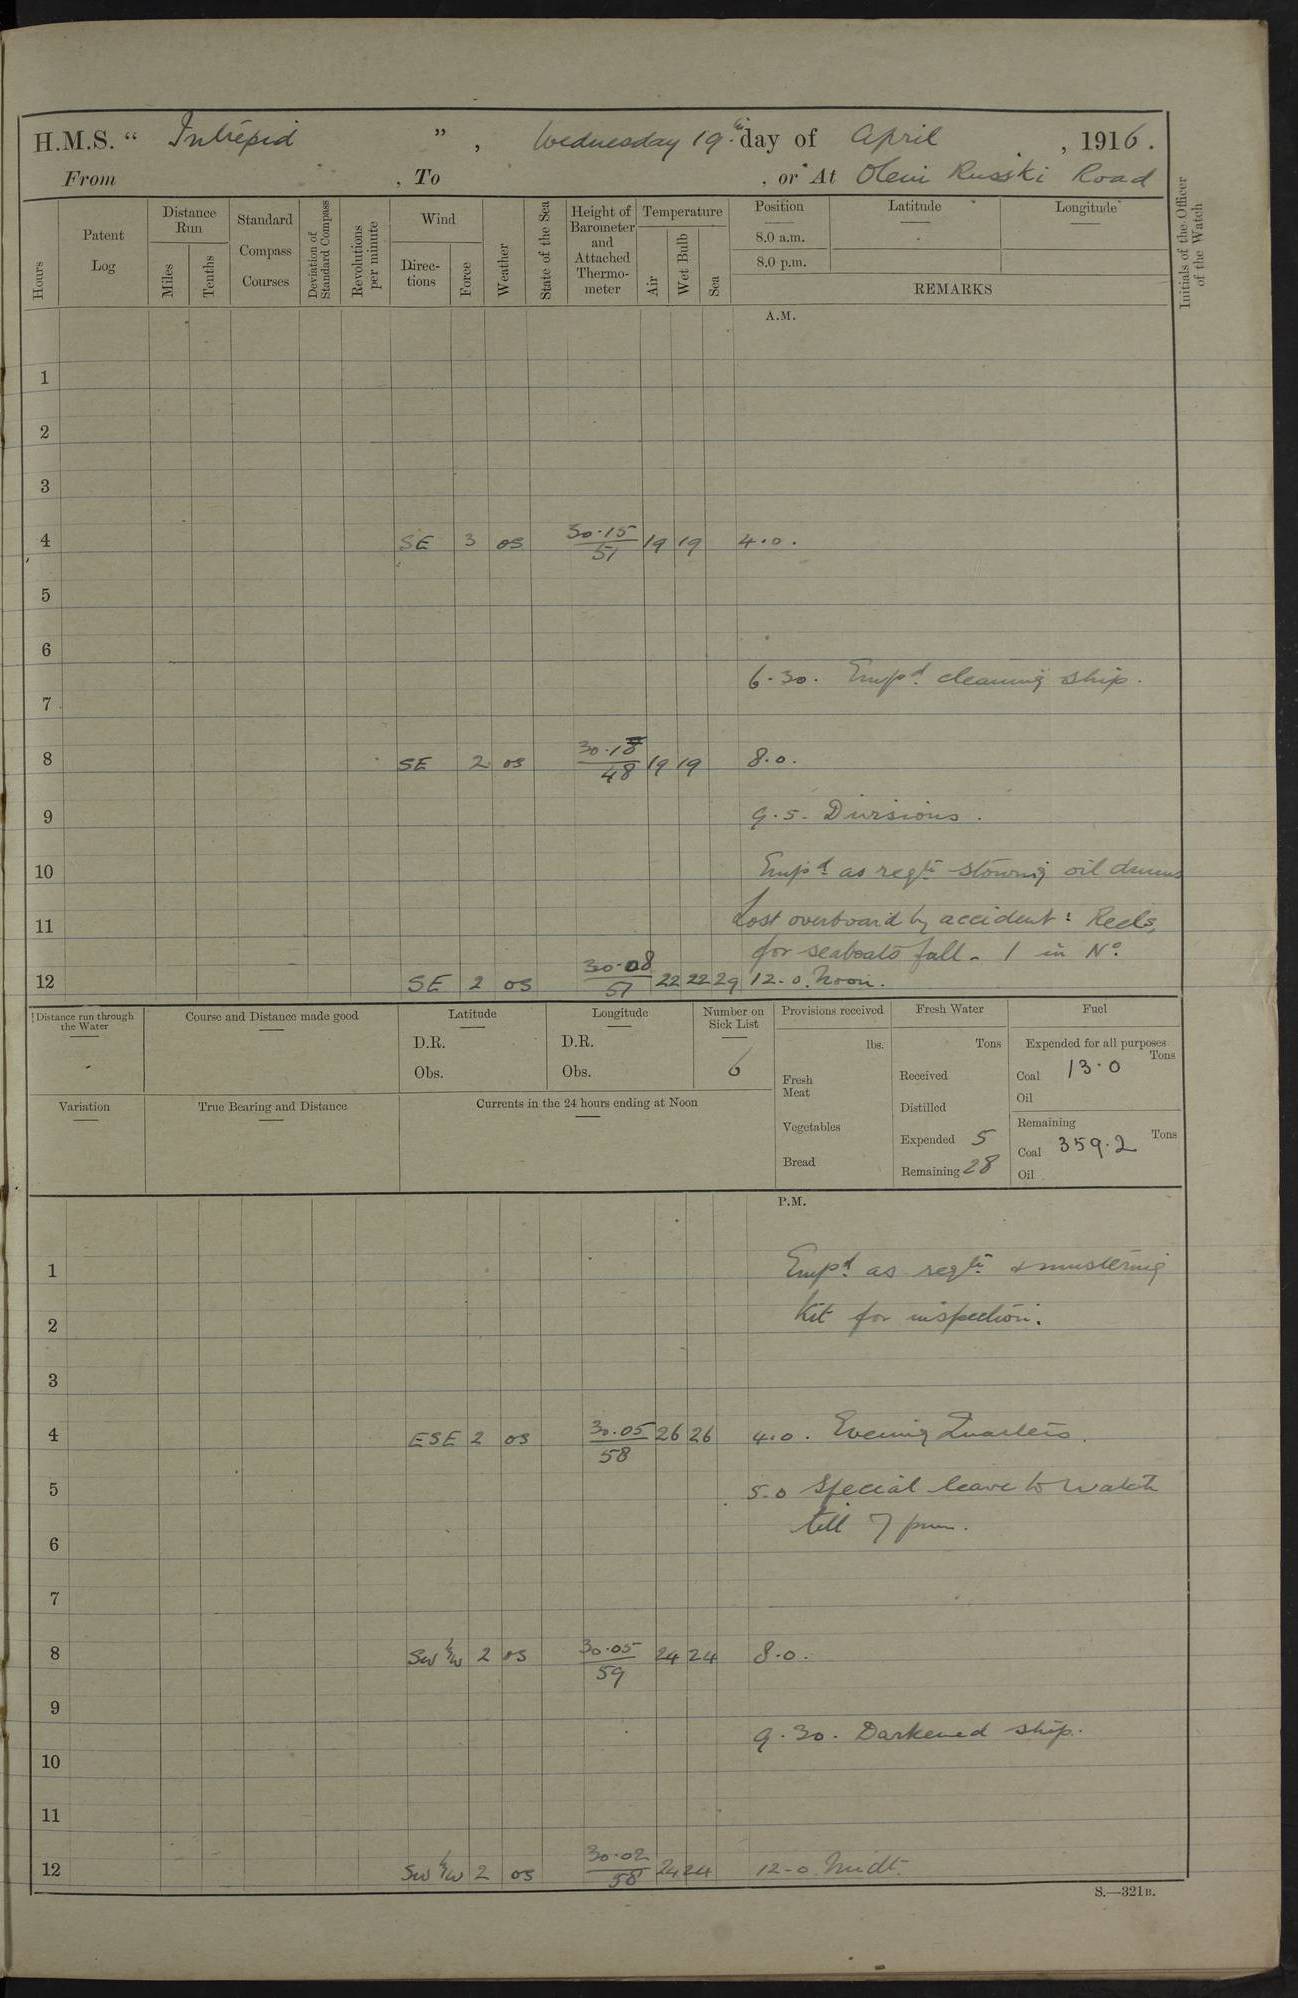 H.M.S. “ Intrepid ” , Wednesday 19th day of April , 1916.
From , To , or At Oleni Russki Road
Hours
Patent Log
Distance Run
Miles
Tenths
Standard Compass Courses
Deviation of Standard Compass
Revolutions per minute
Wind
Direc-tions
Force
Weather
State of the Sea
Height of Barometer and Attached Thermo-meter
Temperature
Air
Wet Bulb
Sea
Position
8.0 a.m.
8.0 p.m.
Latitude
Longitude
REMARKS
Initials of the Officer of the Watch
A.M.
1
2
3
4 SE 3 os 30.15/51 19 19 4.0.
5
6
6.30. Empd. cleaning ship.
7
8 SE 2 os 30.18/48 19 19 8.0.
9 9.5. Divisions.
10 Empd. as reqte. stowing oil drums
11 Lost overboard by accident: Reels,
for seaboats fall. 1 in No.
12 SE 2 os 30.08/51 22 22 29 12.0. Noon.
Distance run through the Water
Course and Distance made good
Latitude
D.R.
Obs.
Longitude
D.R.
Obs.
Number on Sick List
6
Provisions received
lbs.
Fresh Meat
Vegetables
Bread
Fresh Water
Tons
Received
Distilled
Expended 5
Remaining 28
Fuel
Expended for all purposes
Tons
Coal 13.0
Oil
Remaining
Tons
Coal 359.2
Oil
Variation
True Bearing and Distance
Currents in the 24 hours ending at Noon
P.M.
1 Empd. as reqte. & mustering
2 Kit for inspection.
3
4 ESE 2 os 30.05/58 26 26 4.0. Evening Quarters.
5 5.0 Special leave to watch
till 7 pm.
6
7
8 SW by W 2 os 30.05/59 24 24 8.0.
9
9.30. Darkened ship.
10
11
12 SW by W 2 os 30.02/58 24 24 12.0 Midt.
S.—321B.